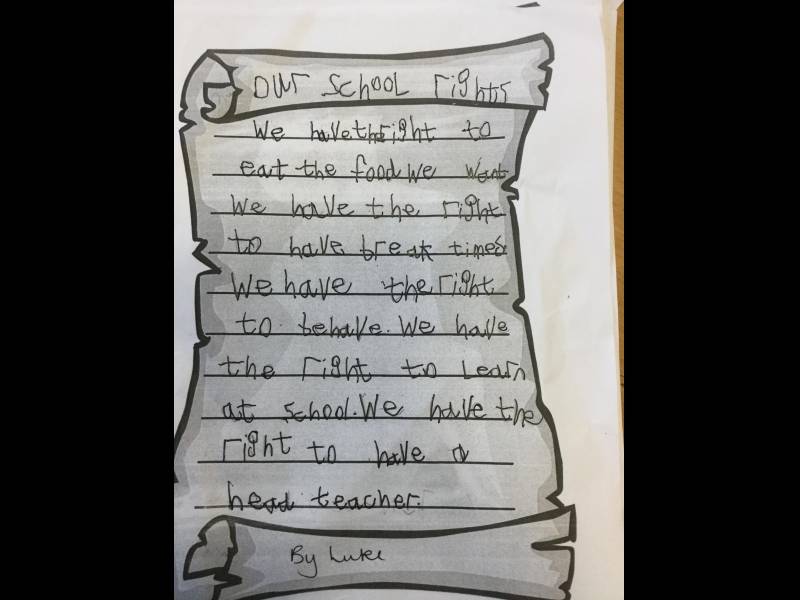 our school rights
We have the right to
eat the food we want
We have the right
to have break times
We have the right
to behave. We have
the right to learn
at school. We have the
right to have a
head teacher.
By Luke